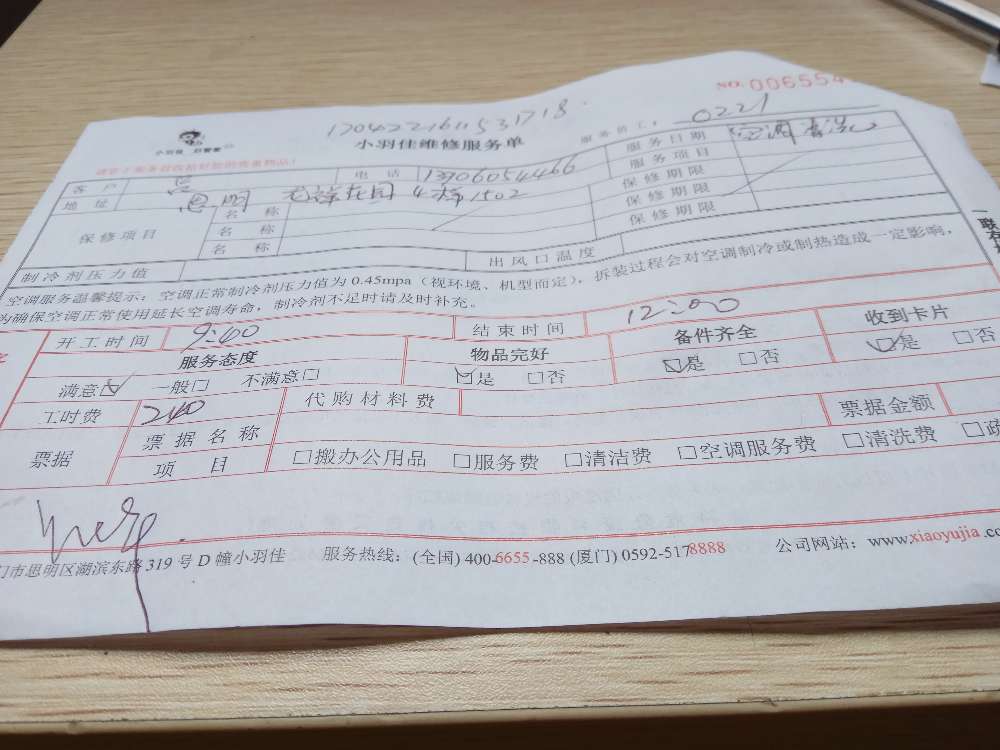 NO. 006554
1704221611531718
0221
小羽佳 好管家
小羽佳维修服务单
服务员工:
客户 吴 电话 13906054466 服务日期
地址 思明 4栋1502 服务项目 空调清洗
保修项目 名称 保修期限
名称 保修期限
名称 保修期限
制冷剂压力值 出风口温度
空调服务温馨提示:空调正常制冷剂压力值为0.45mpa(视环境、机型而定),拆装过程会对空调制冷或制热造成一定影响,
为确保空调正常使用延长空调寿命,制冷剂不足时请及时补充。
开工时间 9:40 结束时间 12:00
服务态度 物品完好 备件齐全 收到卡片
满意☑ 一般□ 不满意□ ☑是 □否 ☑是 □否 ☑是 □否
工时费 240 代购材料费
票据 票据名称 票据金额
项目 □搬办公用品 □服务费 □清洁费 □空调服务费 □清洗费 □疏
门市思明区湖滨东路319号D幢小羽佳 服务热线:(全国)400-6655-888(厦门)0592-5178888 公司网站:www.xiaoyujia.co